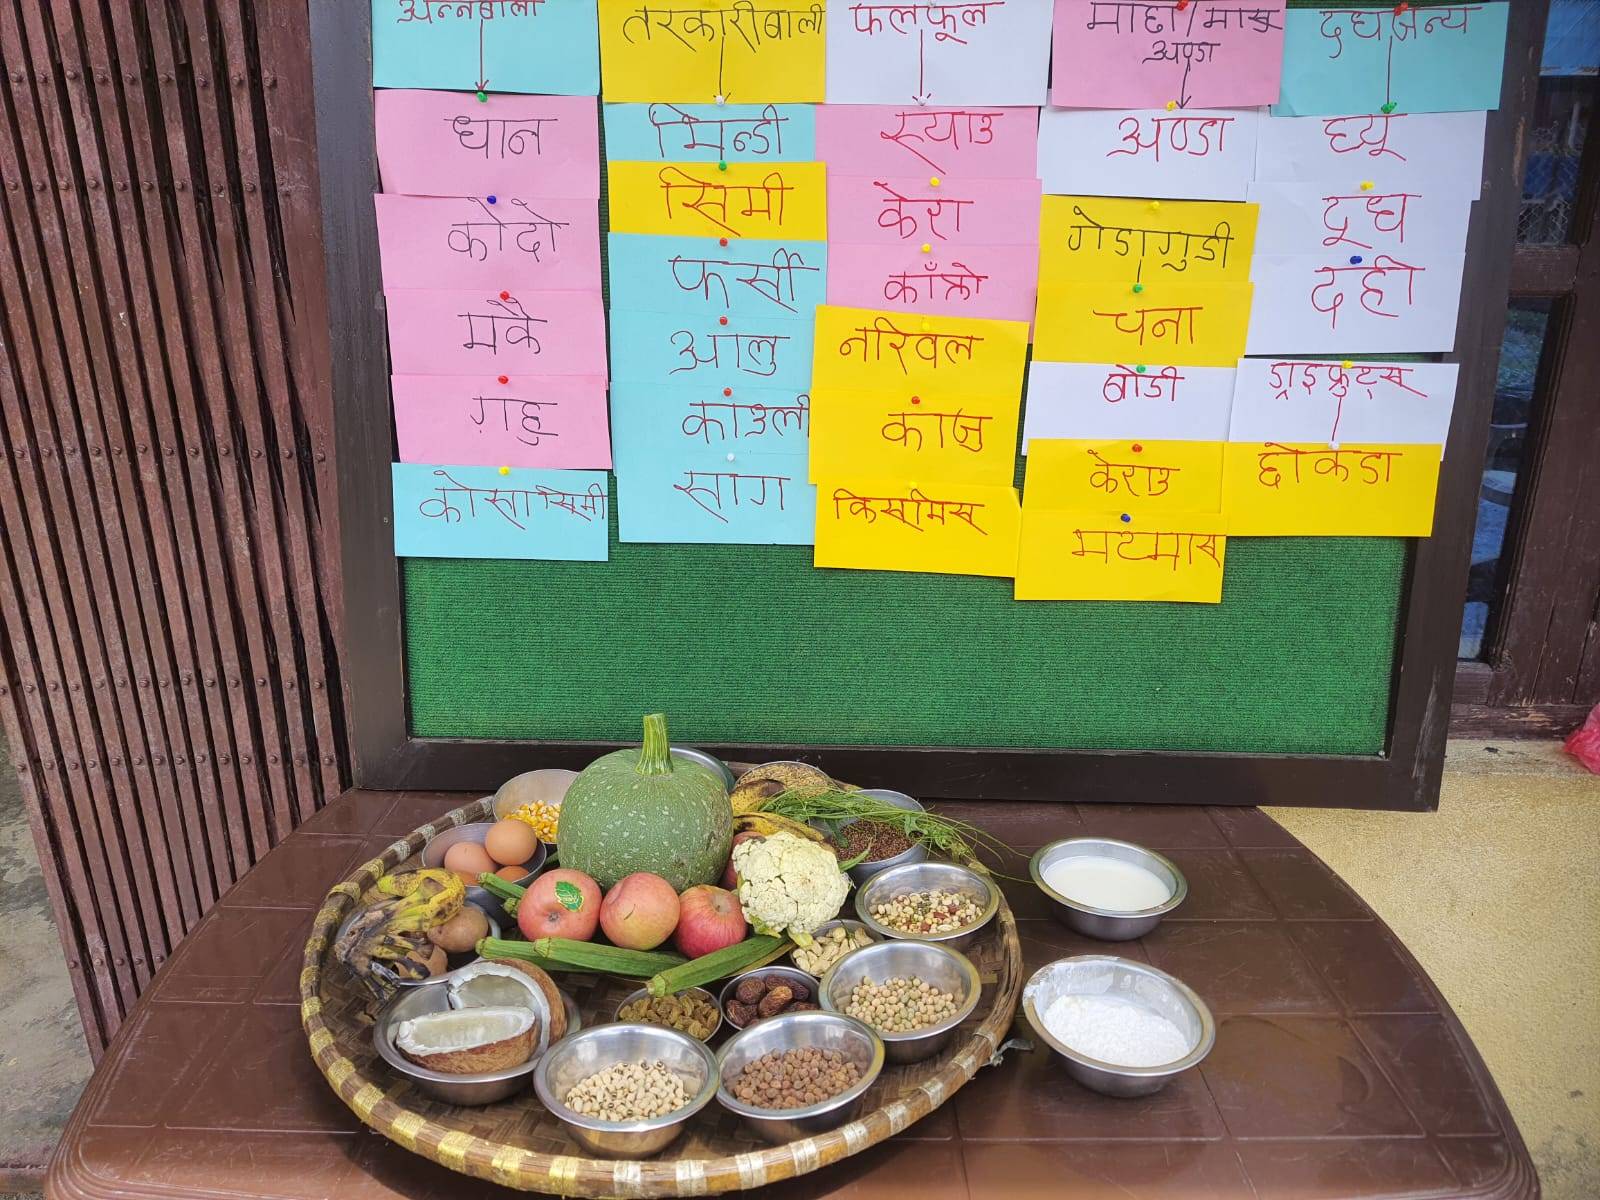 अन्नबाली
तरकारीबाली
फलफूल
माछा/मासु
अण्डा
दुधजन्य
धान
कोदो
मकै
ग़हु
कोसा सिमी
भिन्डी
सिमी
फर्सी
आलु
काउली
साग
स्याउ
केरा
काँक्रो
नरिवल
काजु
किसमिस
अण्डा
गेडागुडी
चना
बोडी
केराउ
भटमास
घ्यू
दूध
दही
ड्राइफ्रुट्स
छोकडा